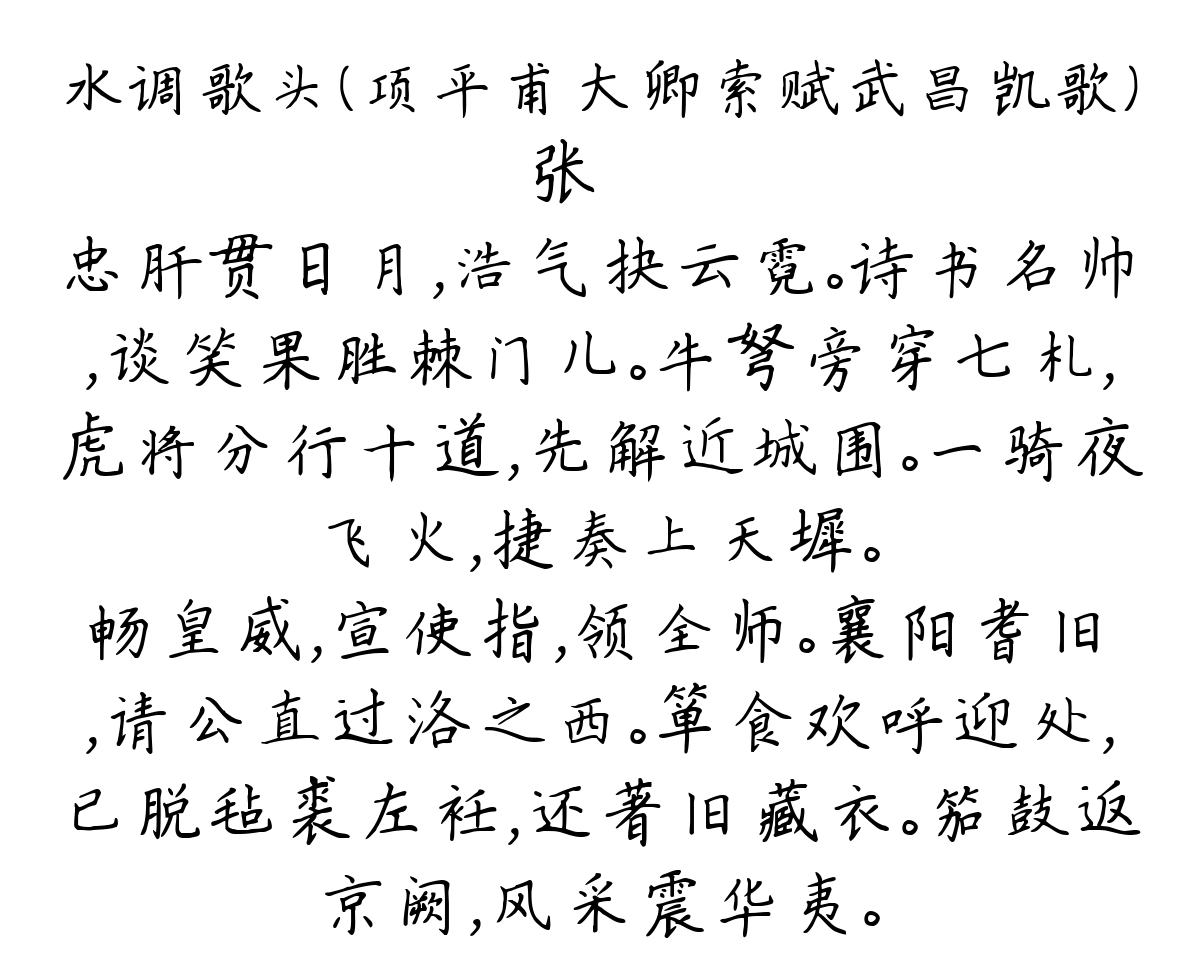 水调歌头(项平甫大卿索赋武昌凯歌)
张
忠肝贯日月,浩气抉云霓。诗书名帅
,谈笑果胜棘门儿。牛弩旁穿七札,
虎将分行十道,先解近城围。一骑夜
飞火,捷奏上天墀。
畅皇威,宣使指,领全师。襄阳耆旧
,请公直过洛之西。箪食欢呼迎处,
已脱毡裘左衽,还著旧藏衣。笳鼓返
京阙,风采震华夷。